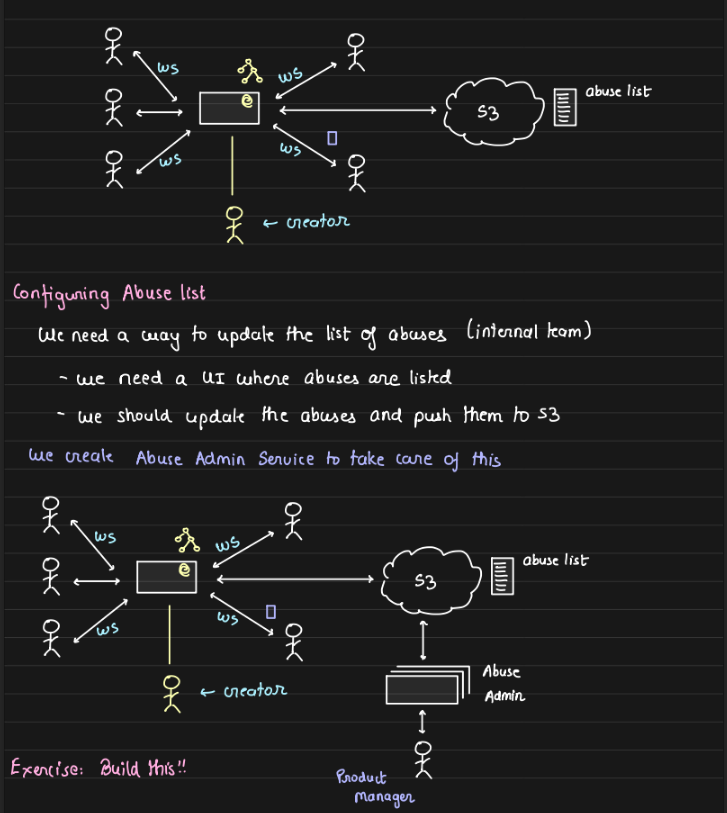 ws
ws
ws
ws
S3
abuse list
← creator
Configuring Abuse list
We need a way to update the list of abuses (internal team)
- we need a UI where abuses are listed
- we should update the abuses and push them to S3
we create Abuse Admin Service to take care of this
ws
ws
ws
ws
S3
abuse list
← creator
Abuse
Admin
Exercise: Build this!!
Product
Manager